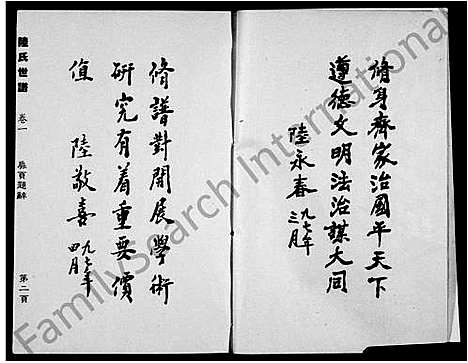 修身齊家治國平天下
遵德文明法治謀大同
陸永春 九七年
三月
修譜對開展學術
研究有着重要價
值 陸敬喜 九七年
四月
陸氏世譜 卷一 扉頁題辭 第二頁
FamilySearch International